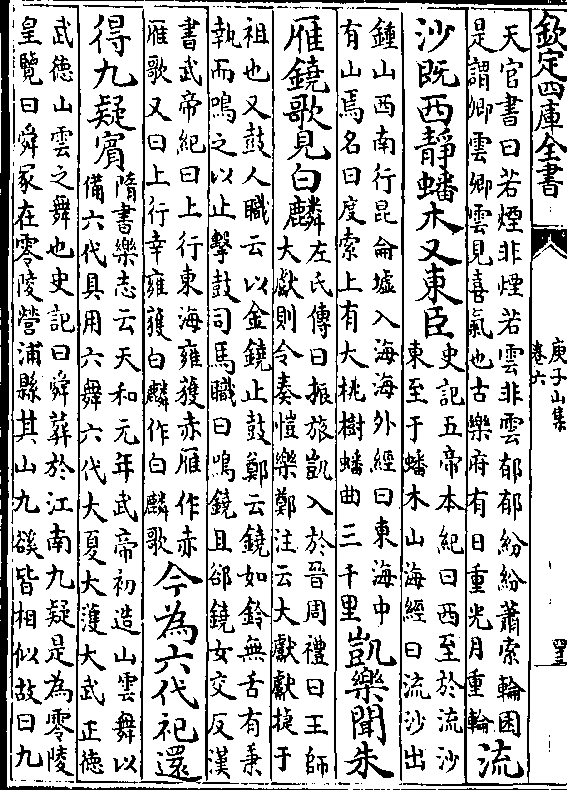 欽定四庫全書
庾子山集
卷六
天官書曰若煙非煙若雲非雲郁郁紛紛蕭索輪囷
是謂卿雲卿雲見喜氣也古樂府有日重光月重輪
流
沙既西靜蟠木又東臣
史記五帝本紀曰西至於流沙
東至于蟠木山海經曰流沙出
鍾山西南行昆侖墟入海海外經曰東海中
有山焉名曰度索上有大桃樹蟠曲三千里
凱樂聞朱
雁鐃歌見白麟
左氏傳曰振旅凱入於晉周禮曰王師
大獻則令奏愷樂鄭注云大獻獻捷于
祖也又鼓人職云以金鐃止鼓鄭云鐃如鈴無舌有秉
執而鳴之以止擊鼓司馬職曰鳴鐃且郤鐃女交反漢
書武帝紀曰上行東海雍獲赤雁作赤
雁歌又曰上行幸雍獲白麟作白麟歌
今為六代祀還
得九疑賓
隋書樂志云天和元年武帝初造山雲舞以
備六代具用六舞六代大夏大濩大武正德
武德山雲之舞也史記曰舜葬於江南九疑是為零陵
皇覽曰舜冢在零陵營浦縣其山九谿皆相似故曰九